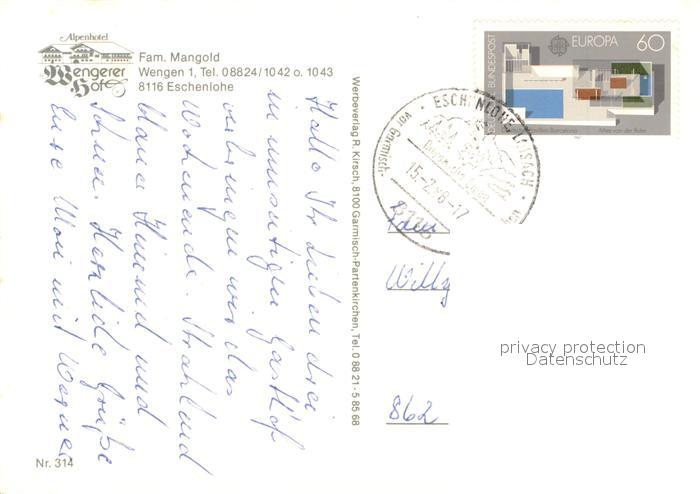 Alpenhotel
Wengerer
Hof
Fam. Mangold
Wengen 1, Tel. 08824/1042 o. 1043
8116 Eschenlohe
Hallo Ihr lieben drei
in unserem Gasthof
verbringen wir das
Wochenende. Strahlend
blauer Himmel und
Sonne. Herzliche Grüße
Eure Moni mit Werner
Nr. 314
Werbeverlag R. Kirsch, 8100 Garmisch-Partenkirchen, Tel. 0 88 21 - 5 85 68
DEUTSCHE BUNDESPOST
EUROPA 60
Pavillon Barcelona
Mies van der Rohe
ESCHENLOHE
15.-2.
-17
Willy
862
privacy protection
Datenschutz